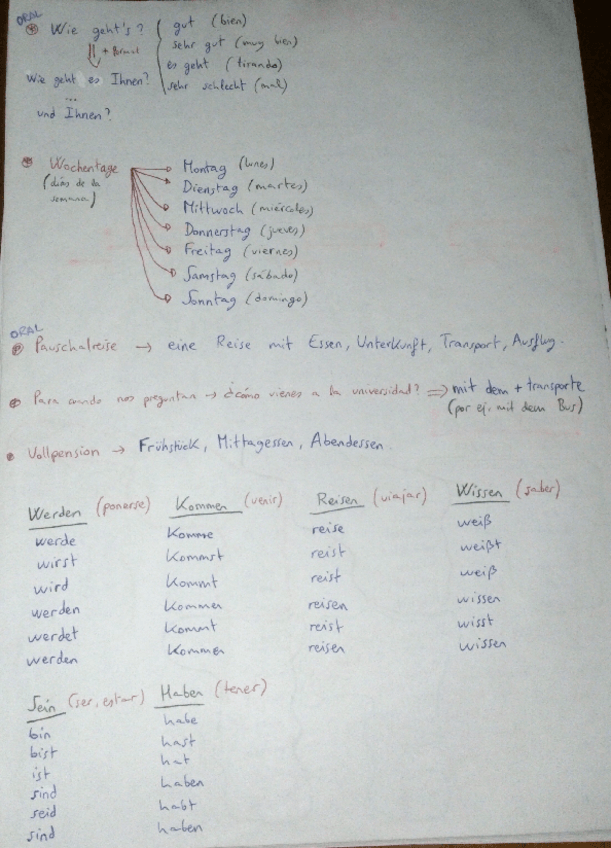 ORAL
Wie geht's? gut (bien)
sehr gut (muy bien)
+ formal
es geht (tirando)
Wie geht es Ihnen? sehr schlecht (mal)
...
und Ihnen?
Wochentage
(días de la
semana)
Montag (lunes)
Dienstag (martes)
Mittwoch (miércoles)
Donnerstag (jueves)
Freitag (viernes)
Samstag (sábado)
Sonntag (domingo)
ORAL
Pauschalreise → eine Reise mit Essen, Unterkunft, Transport, Ausflug.
Para cuando nos preguntan → ¿cómo vienes a la universidad? ⇒ mit dem + transporte
(por ej. mit dem Bus)
Vollpension → Frühstück, Mittagessen, Abendessen.
Werden (ponerse) Kommen (venir) Reisen (viajar) Wissen (saber)
werde Komme reise weiß
wirst Kommst reist weißt
wird Kommt reist weiß
werden Kommen reisen wissen
werdet Kommt reist wisst
werden Kommen reisen wissen
Sein (ser, estar) Haben (tener)
bin habe
bist hast
ist hat
sind haben
seid habt
sind haben